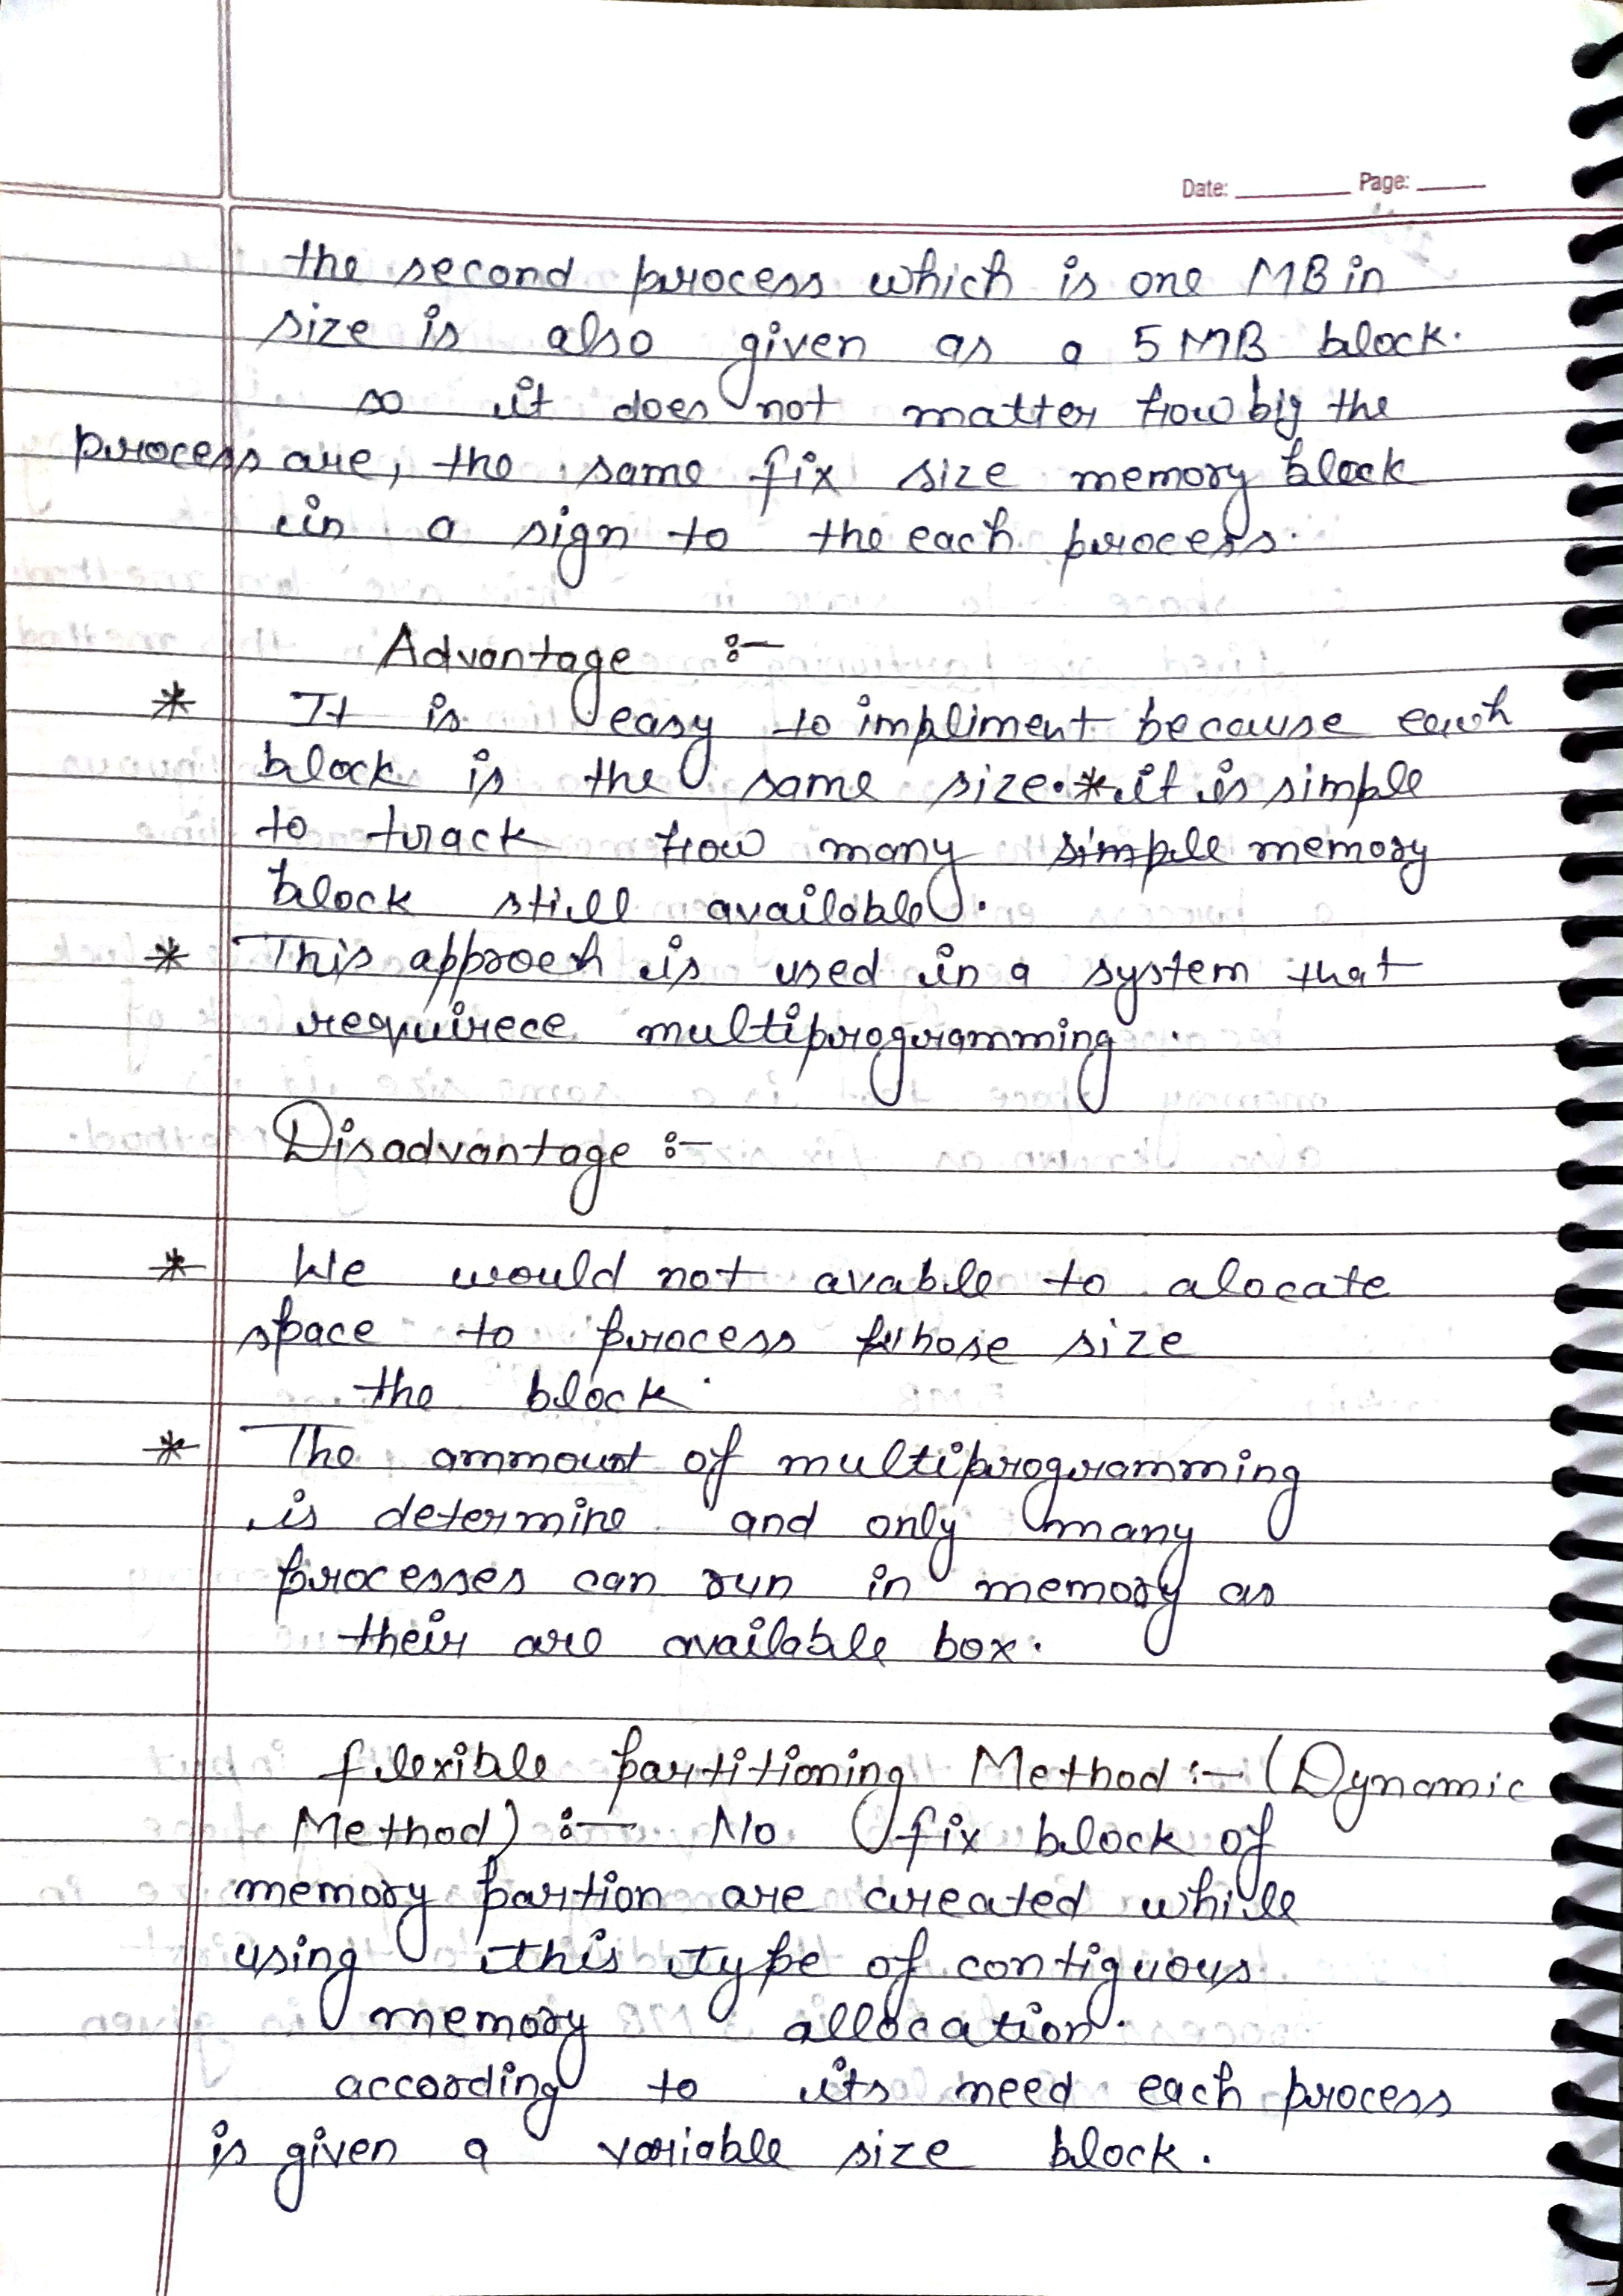 Date: Page:
the second process which is one MB in
size is also given as a 5 MB block.
so it does not matter how big the
process are, the same fix size memory block
in a sign to the each process.
Advantage :-
* It is easy to impliment because each
block is the same size. * it is simple
to track how many simple memory
block still available.
* This approch is used in a system that
requirece multiprogramming .
Disadvantage :-
* We would not avable to alocate
space to process whose size
the block.
* The ammount of multiprogramming
is determine and only many
processes can run in memory as
their are available box.
flexible partitioning Method :- (Dynamic
Method) :- No fix block of
memory partion are created while
using this type of contiguous
memory allocation.
according to its need each process
is given a variable size block.